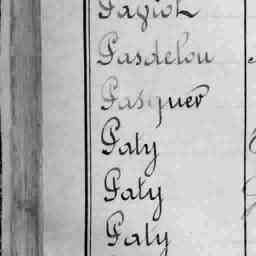 Paviot
Pasdelou
Pasquer
Paty
Paty
Paty